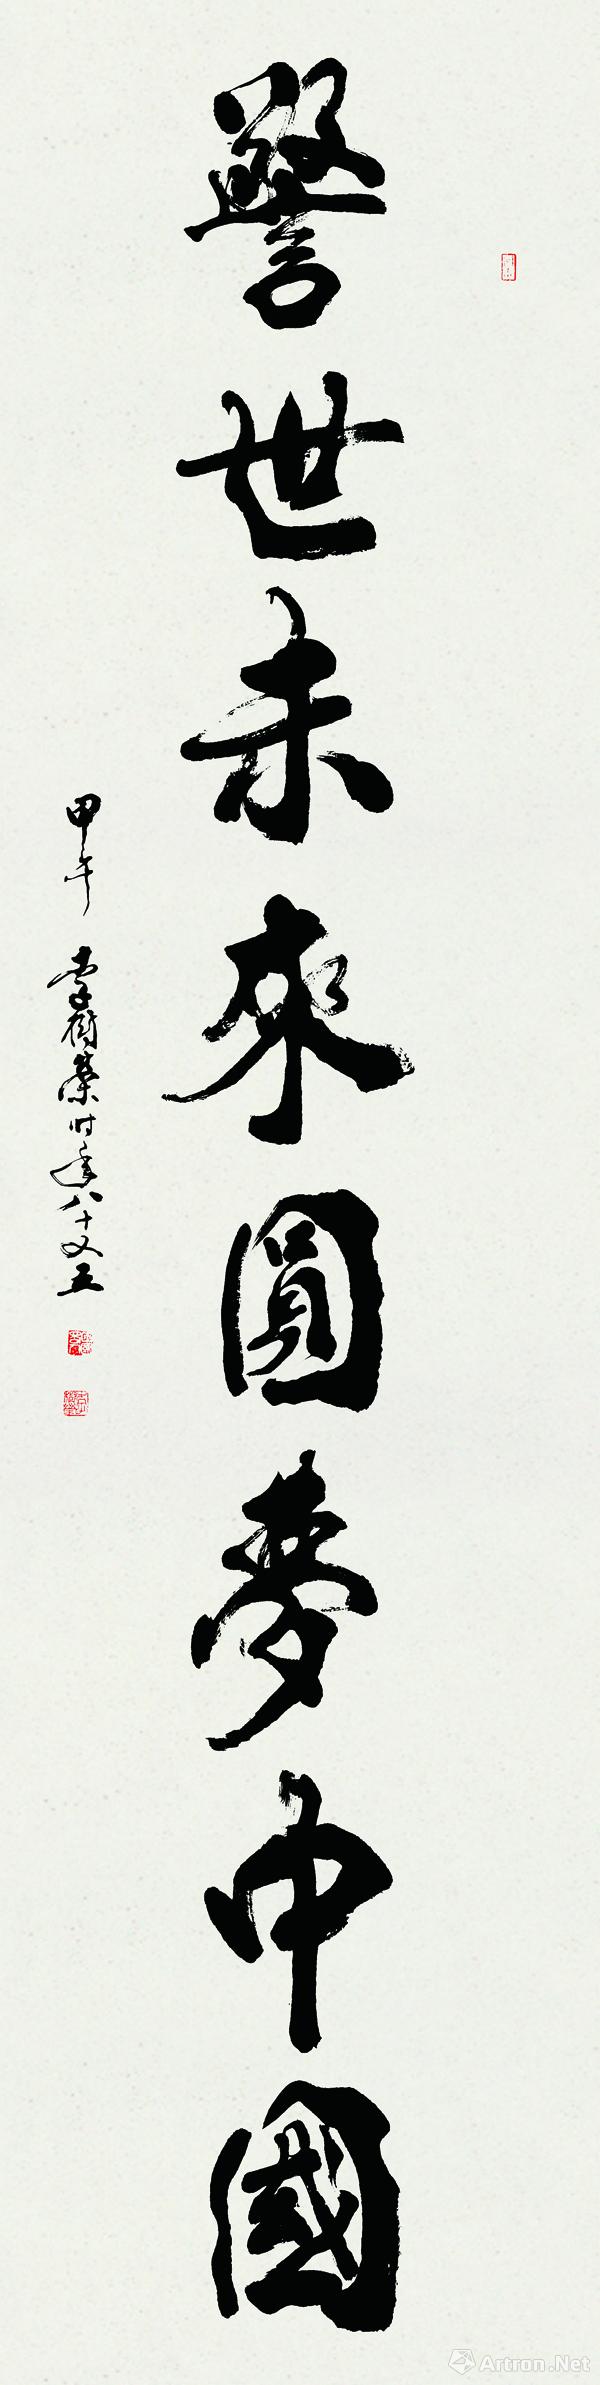 警世未來圓夢中國
甲午 李樹榮时年八十又五
Artron.Net